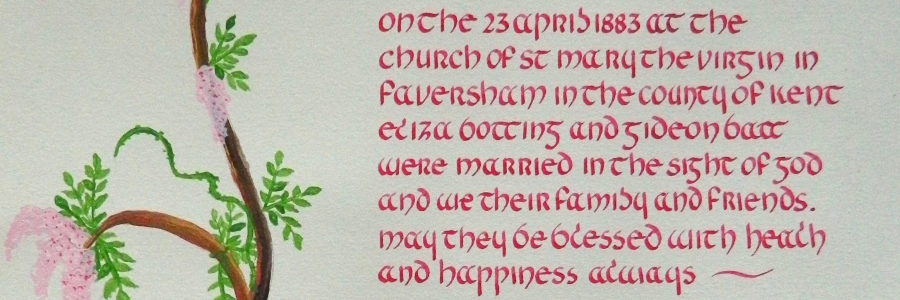 on the 23 april 1883 at the
church of st mary the virgin in
faversham in the county of kent
eliza botting and gideon batt
were married in the sight of god
and we their family and friends.
may they be blessed with health
and happiness always